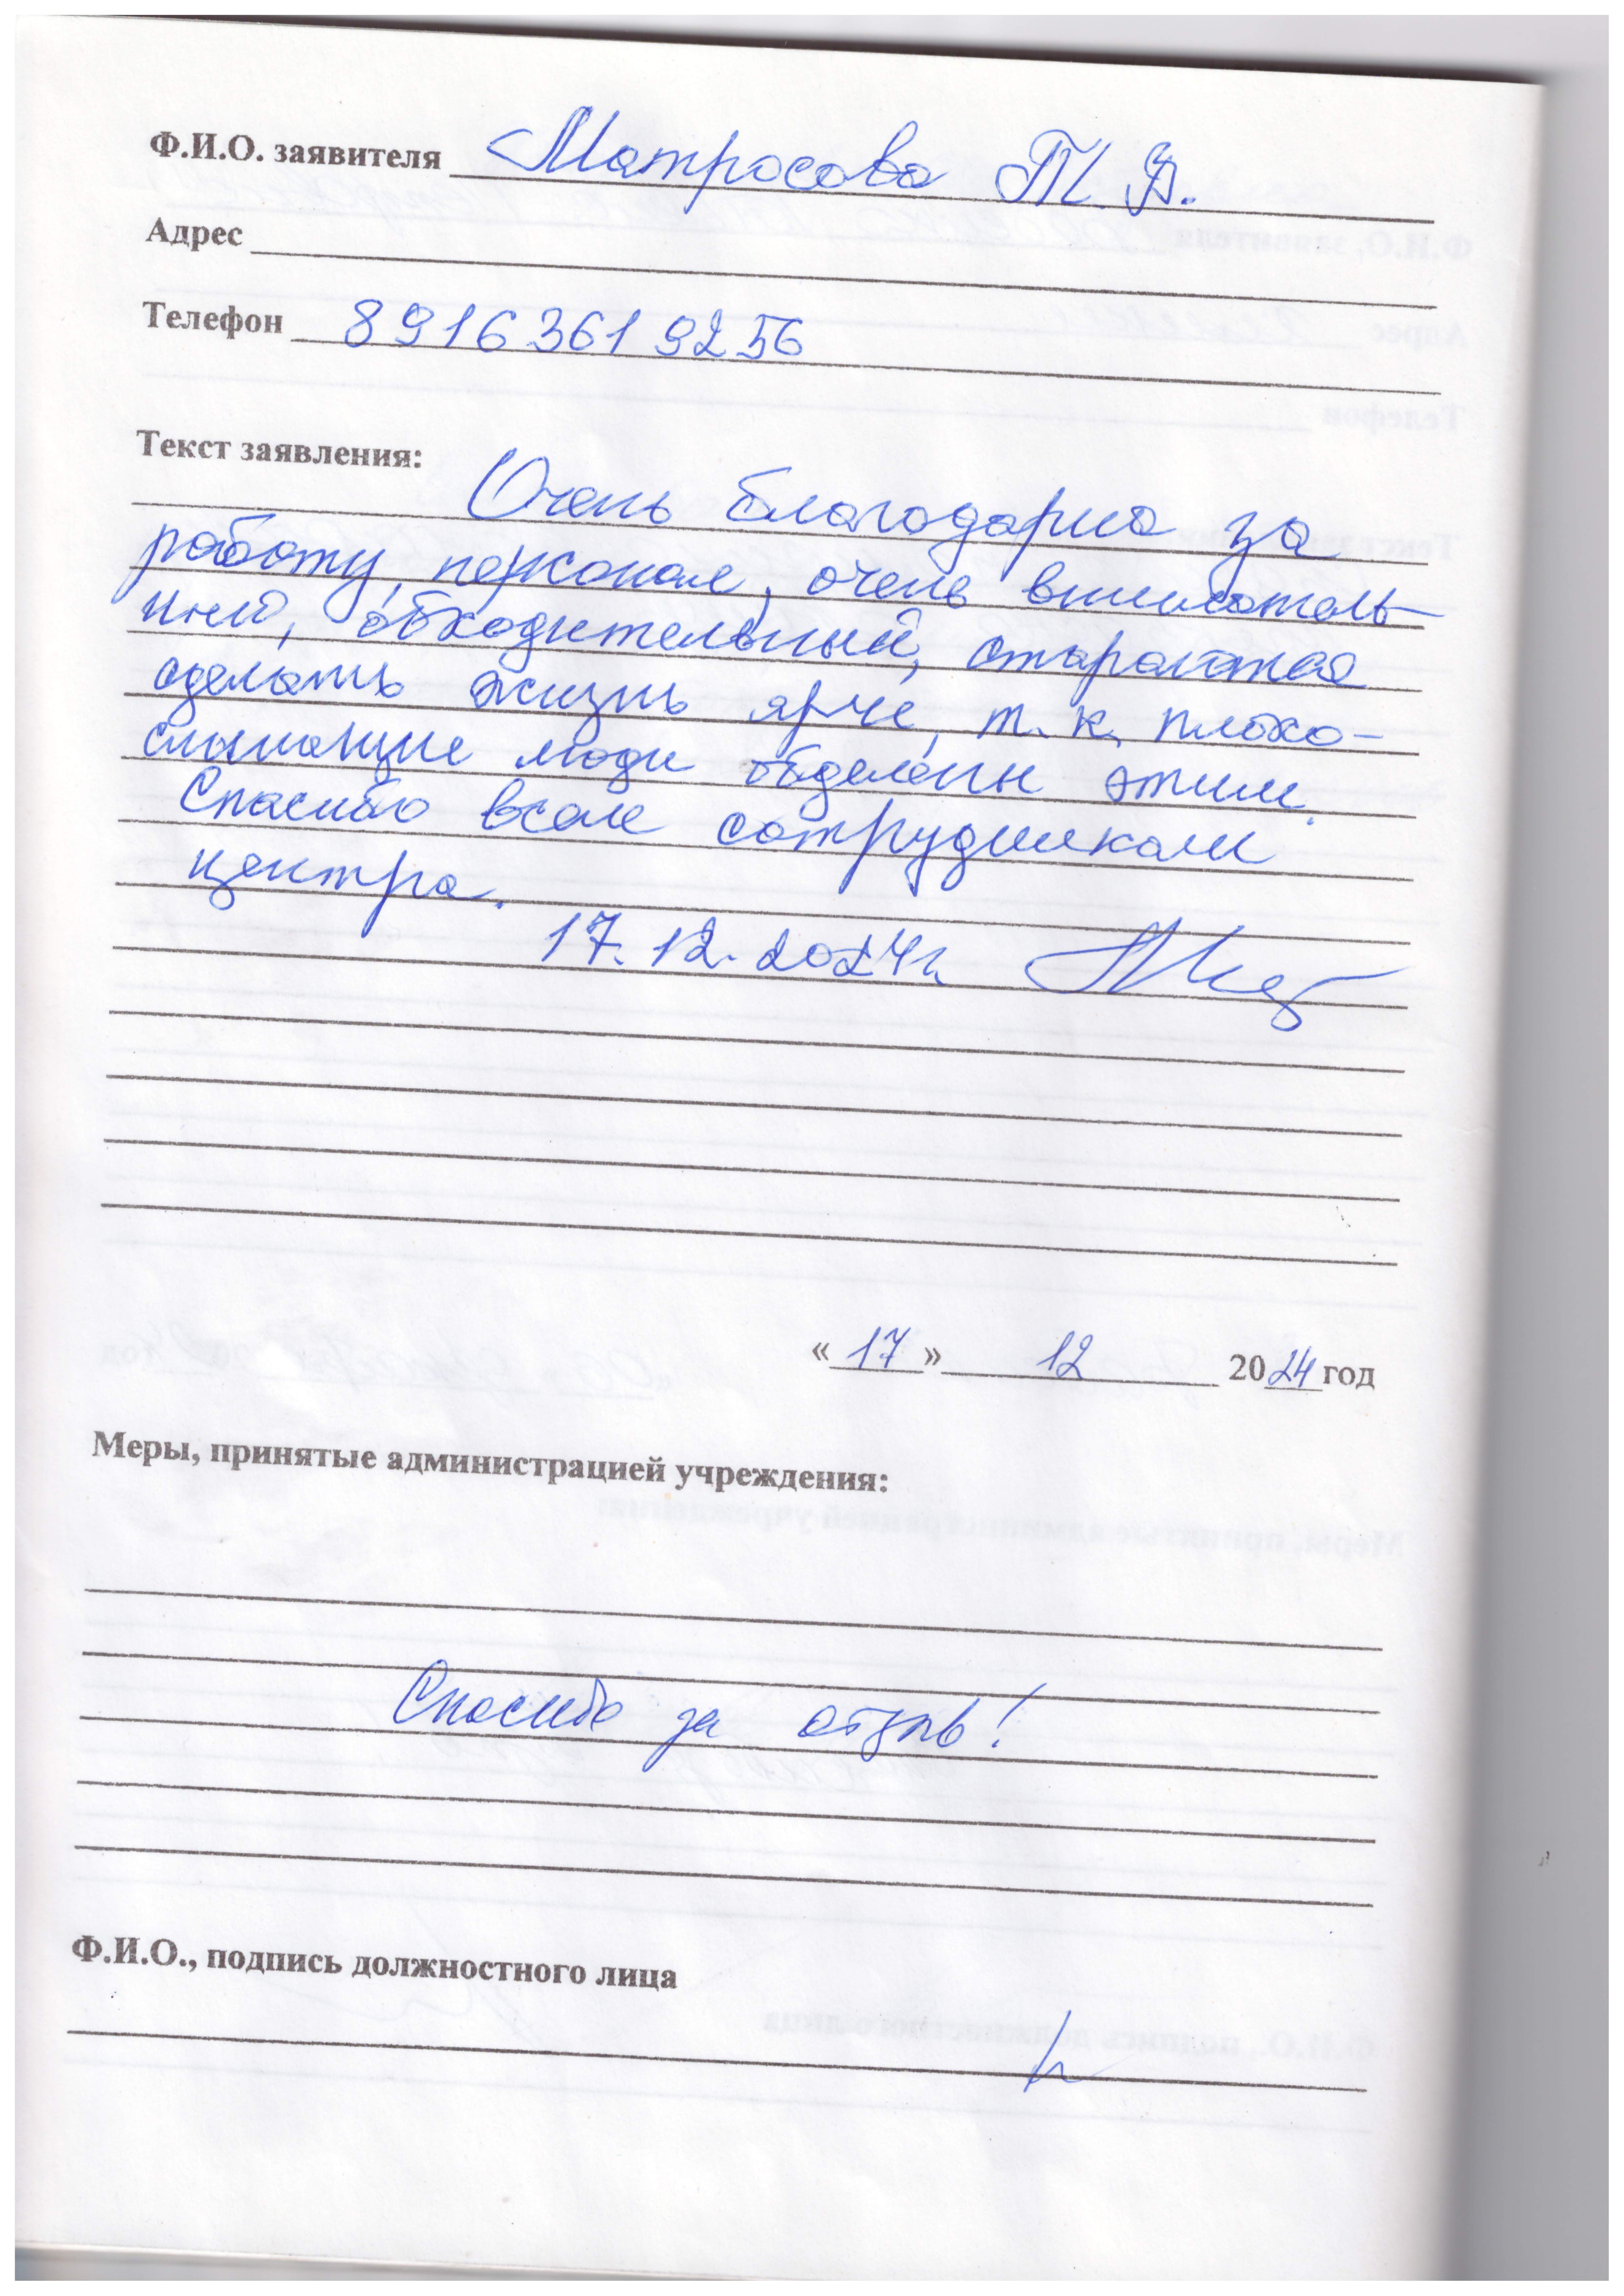 Ф.И.О. заявителя Матросова Т. В.
Адрес
Телефон 8 916 361 92 56
Текст заявления:
Очень благодарна за
работу, персонал, очень вниматель-
ный, обходительный, стараются
сделать жизнь ярче, т. к. плохо-
слышащие люди обделены этим.
Спасибо всем сотрудникам
центра.
17.12.2024г.
«17» 12 2024 год
Меры, принятые администрацией учреждения:
Спасибо за отзыв!
Ф.И.О., подпись должностного лица